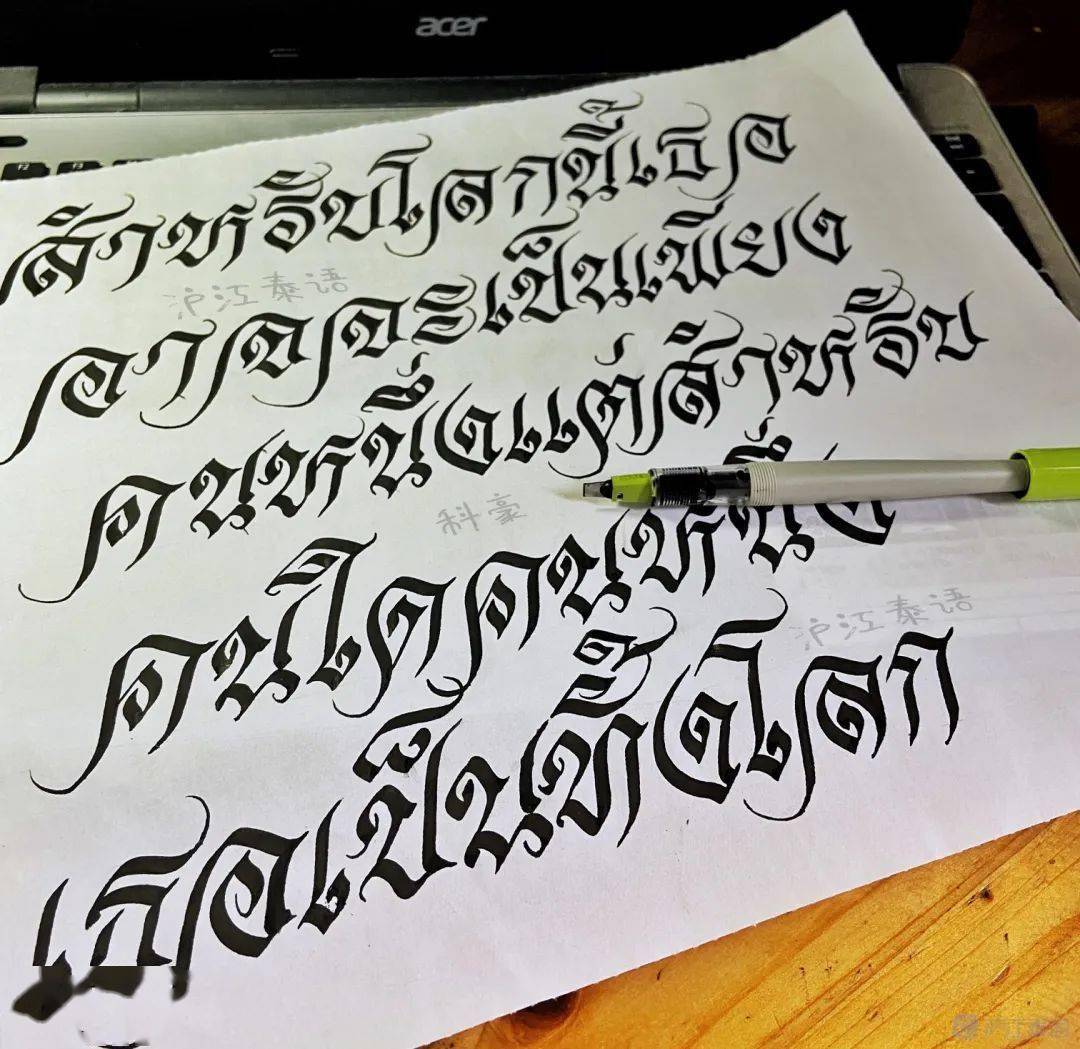 acer
สำหรับโลกนี้เธอ
沪江泰语
อาจจะเป็นเพียง
คนหนึ่งแต่สำหรับ
科豪
คนใดคนหนึ่ง
沪江泰语
เธอเป็นทั้งโลก